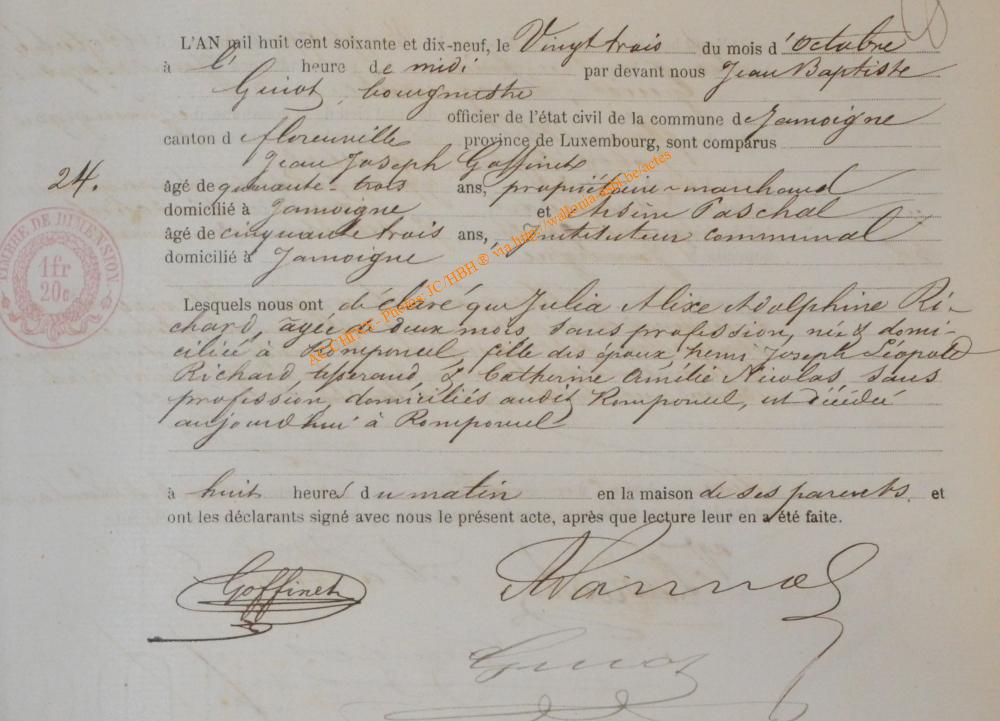 L'AN mil huit cent soixante et dix-neuf, le Vingt trois du mois d'octobre
à l' heure de midi par devant nous Jean Baptiste
Guiot, bourgmestre
officier de l'état civil de la commune de Jamoigne
canton d florenville province de Luxembourg, sont comparus
Jean Joseph Goffinet
24.
âgé de quarante-trois ans, propriétaire-marchand
domicilié à Jamoigne et Arsène Paschal
âgé de cinquante trois ans, instituteur communal
domicilié à Jamoigne
TIMBRE DE DIMENSION.
1fr
20c
Lesquels nous ont déclaré que Julia Alixe Adolphine Ri-
chard, âgée de deux mois, sans profession, née & domi-
ciliée à Romponcel, fille des époux henri Joseph Léopold
Richard, & Catherine Amélie Nicolas, sans
profession, domiciliés audit Romponcel, est décédée
aujourd'hui à Romponcel
à huit heures du matin en la maison de ses parents. et
ont les déclarants signé avec nous le présent acte, après que lecture leur en a été faite.
Goffinet
Guiot